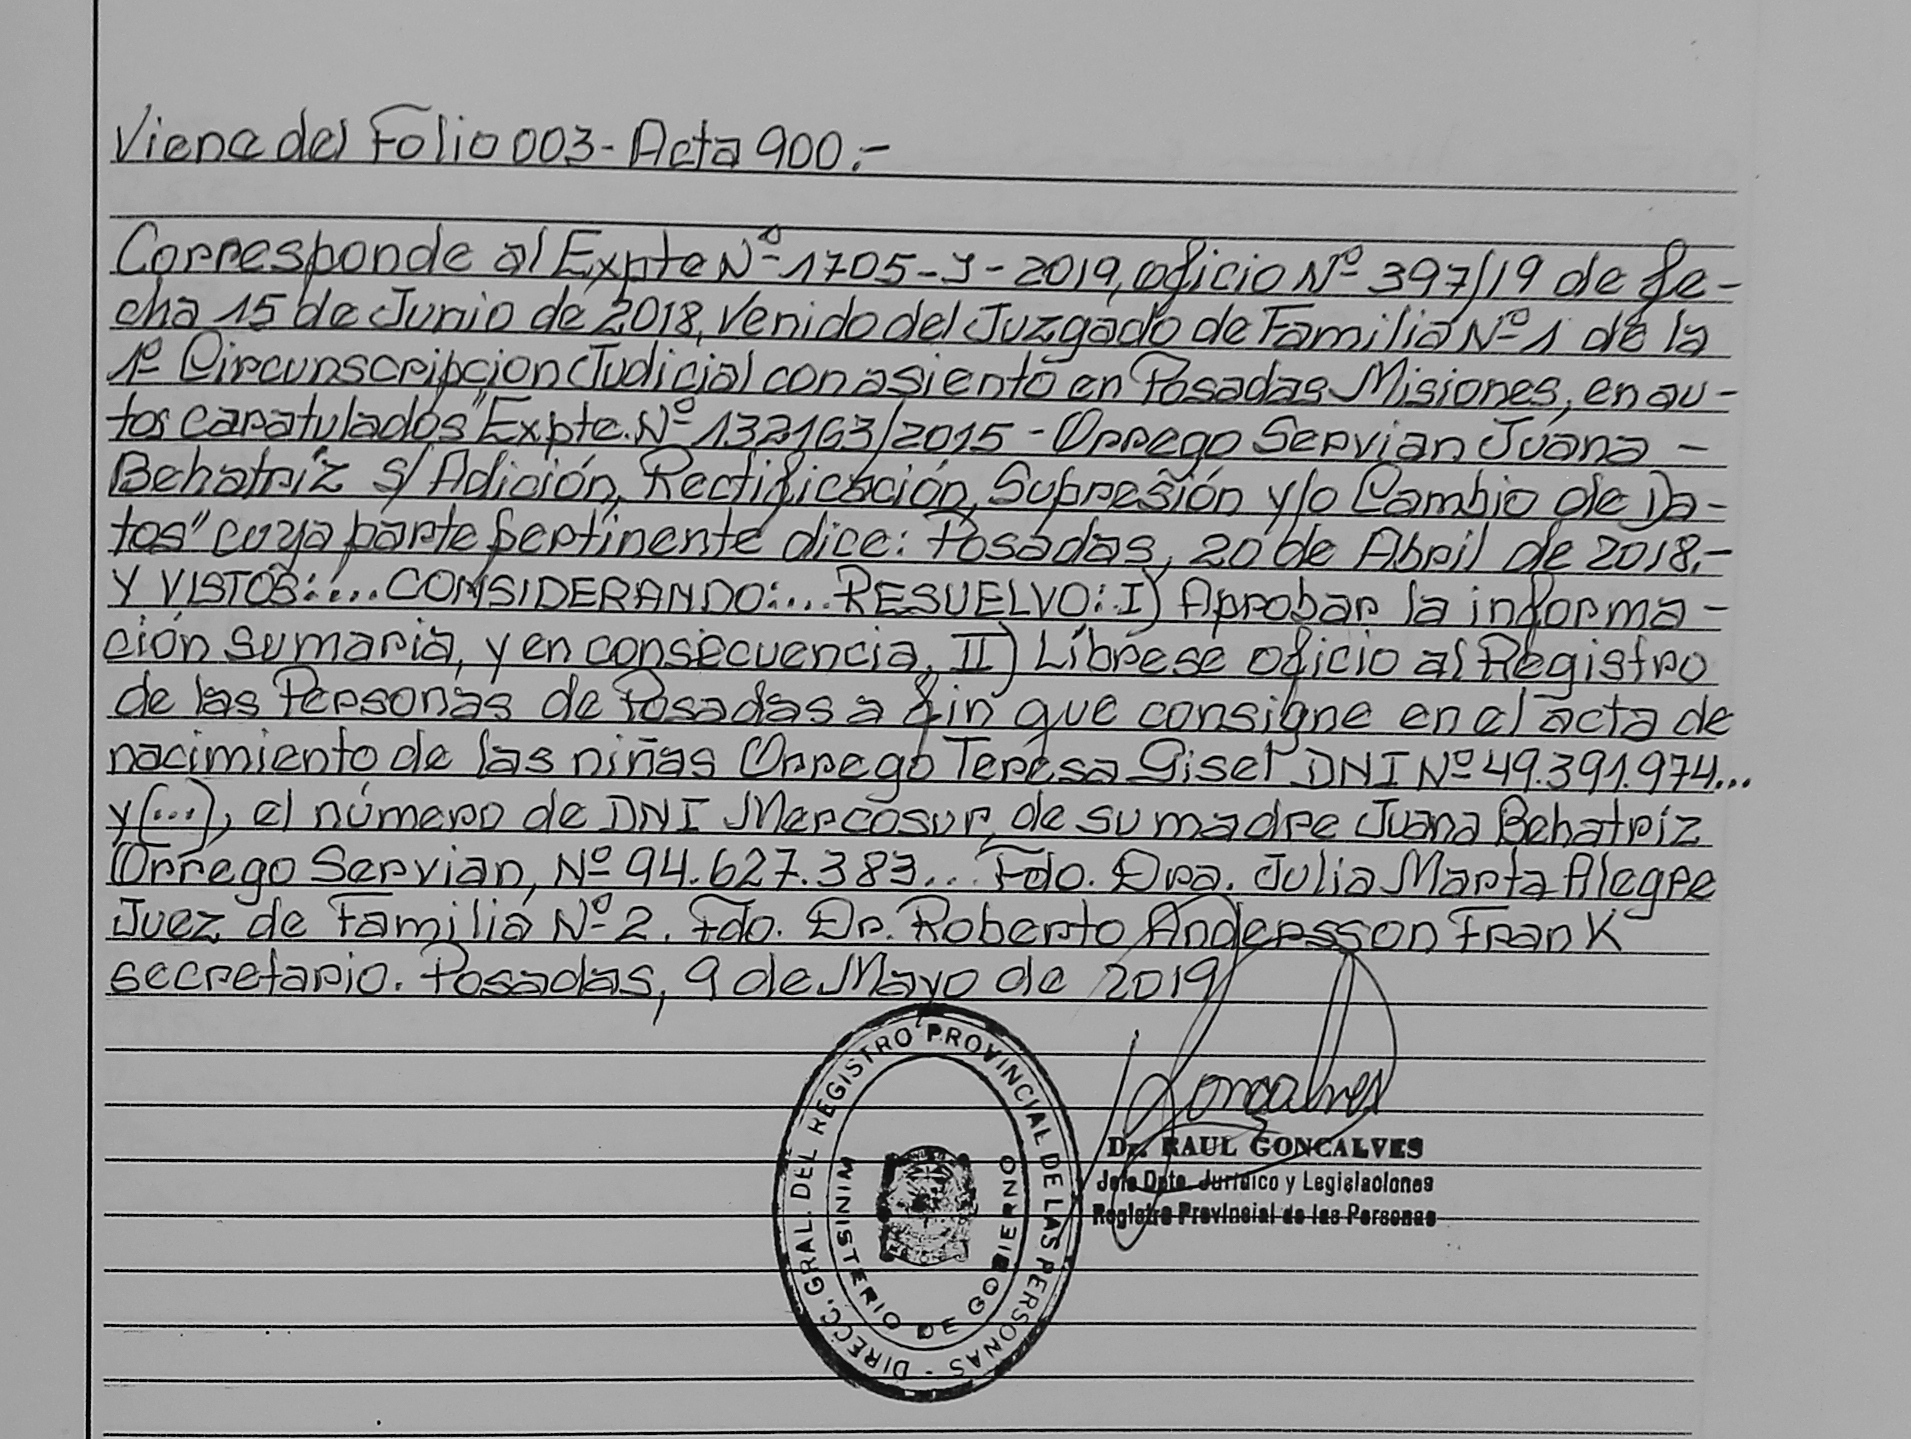 Viene del Folio 003 - Acta 900.-
Corresponde al Expte Nº 1705-J-2019, oficio Nº 397/19 de fe-
cha 15 de Junio de 2018, venido del Juzgado de Familia Nº 1 de la
1º Circunscripcion Judicial con asiento en Posadas Misiones, en au-
tos caratulados "Expte. Nº 132163/2015 - Orrego Servian Juana -
Behatriz S/ Adición, Rectificación, Supresión y/o Cambio de Da-
tos" cuya parte pertinente dice: Posadas, 20 de Abril de 2018.-
Y VISTOS:... CONSIDERANDO:... RESUELVO: I) Aprobar la informa-
ción sumaria, y en consecuencia, II) Líbrese oficio al Registro
de las Personas de Posadas a fin que consigne en el acta de
nacimiento de las niñas Orrego Teresa Gisel DNI Nº 49.391.974...
y (...), el número de DNI Mercosur, de su madre Juana Behatriz
Orrego Servian, Nº 94.627.383... Fdo. Dra. Julia Marta Alegre
Juez de Familia Nº 2. Fdo. Dr. Roberto Andersson Frank
secretario. Posadas, 9 de Mayo de 2019
DIRECC. GRAL. DEL REGISTRO PROVINCIAL DE LAS PERSONAS -
MINISTERIO DE GOBIERNO
Gonçalves
Dr. RAUL GONÇALVES
Jefe Dpto. Jurídico y Legislaciones
Registro Provincial de las Personas